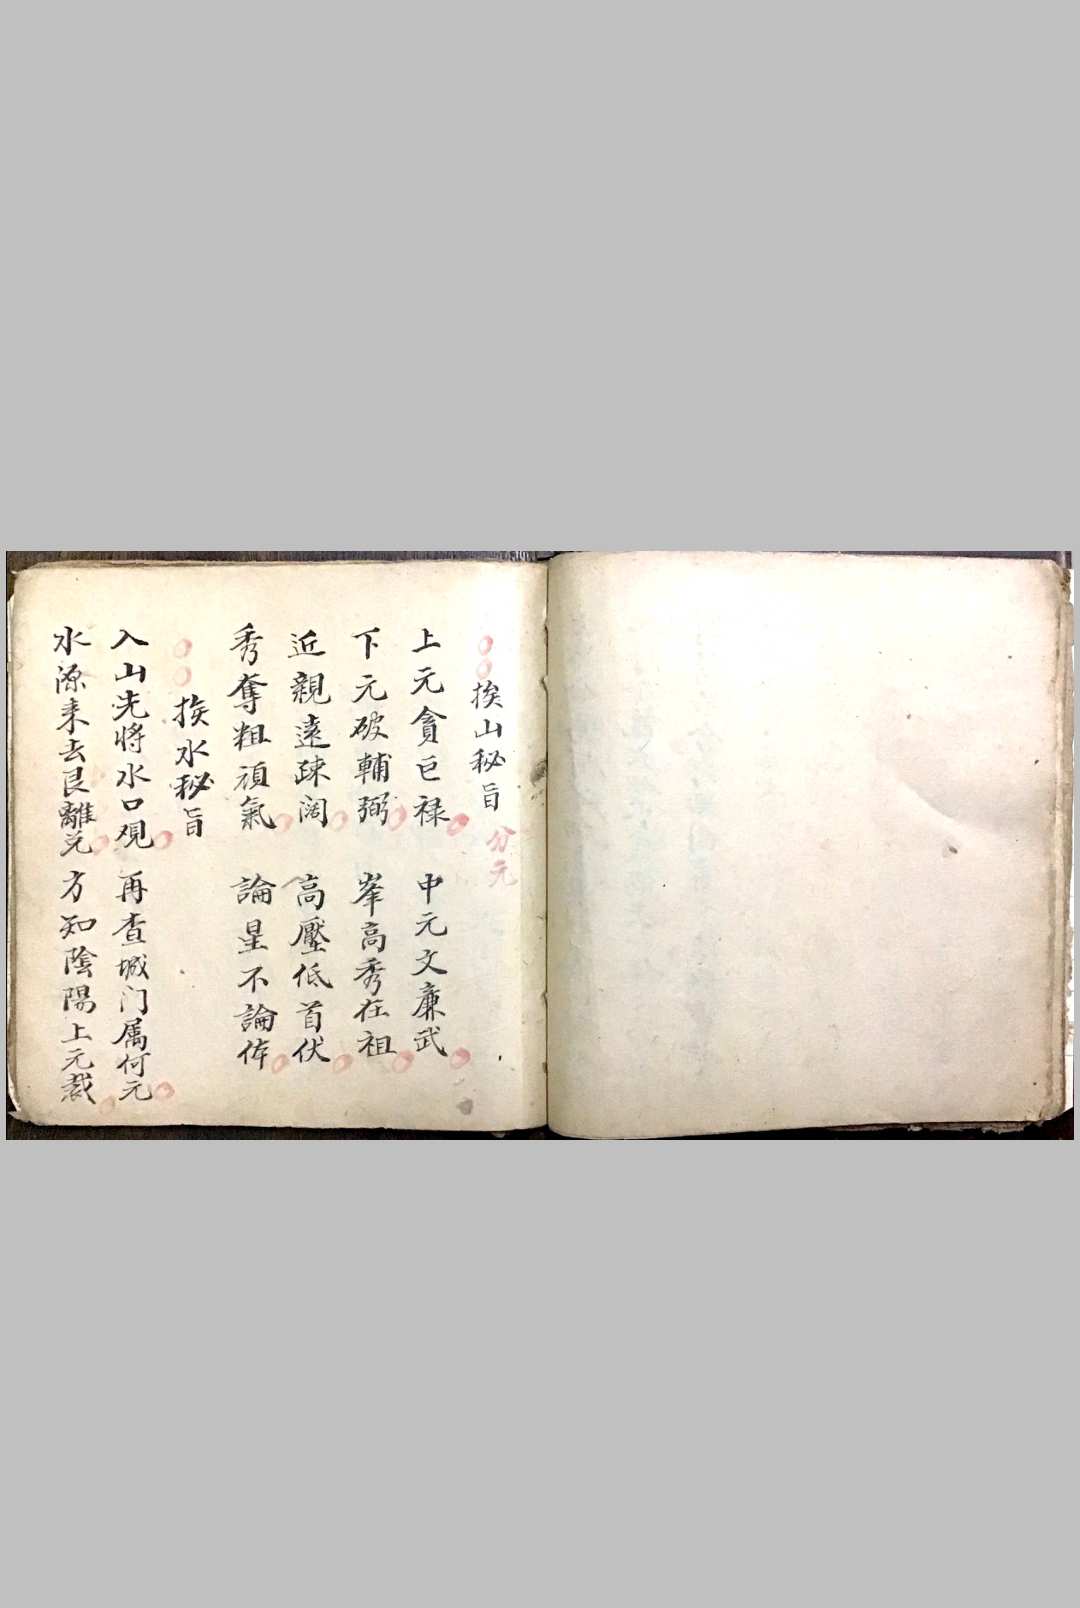 挨山秘旨 分元
上元貪巨禄 中元文廉武
下元破輔弼 峯高秀在祖
近親遠疎闊 高壓低首伏
秀奪粗頑氣 論星不論体
挨水秘旨
入山先将水口观 再查城门属何元
水源来去艮離兑 方知陰陽上元裁